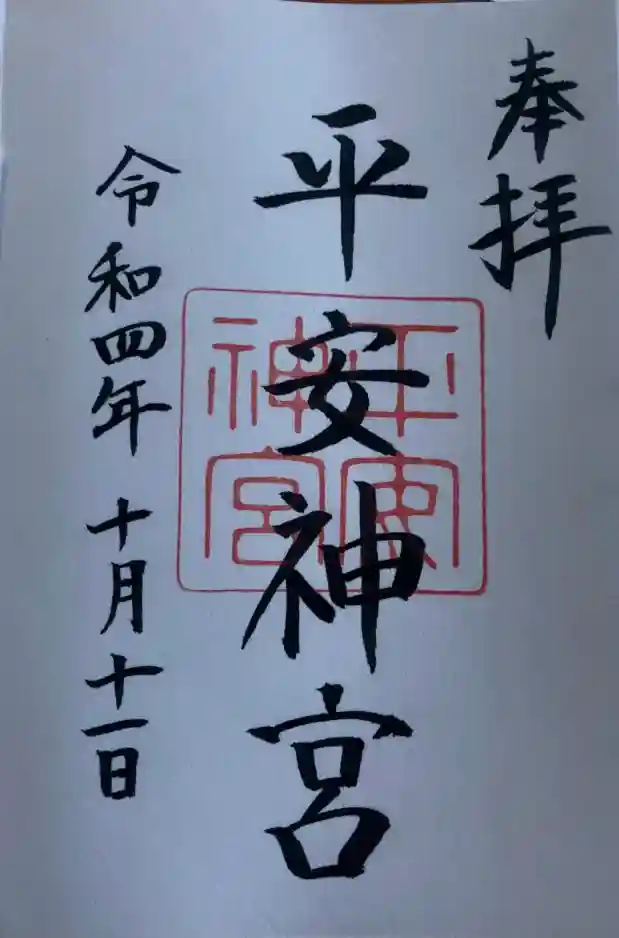 奉拝
平安神宮
平安神宮
令和四年十月十一日